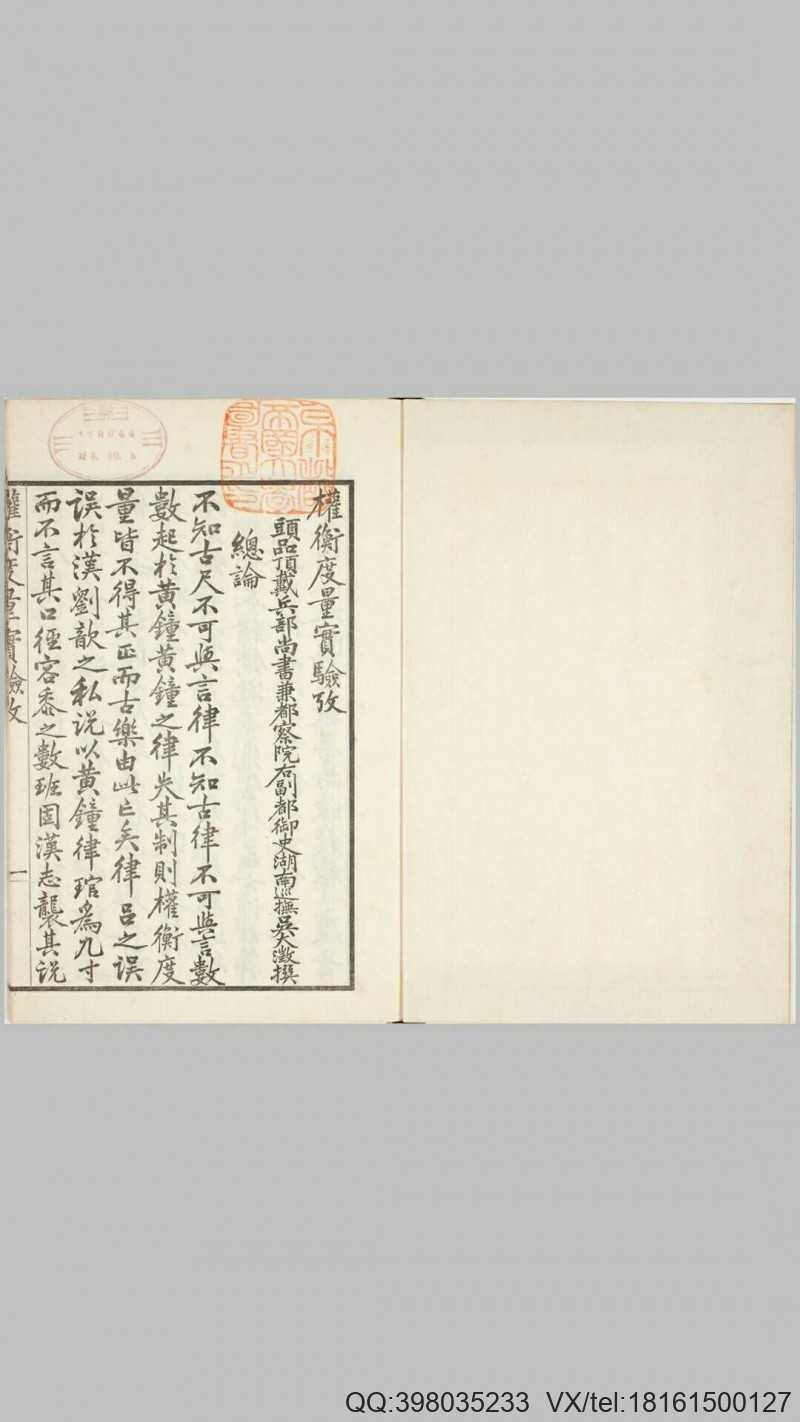 權衡度量實驗攷
頭品頂戴兵部尚書兼都察院右副都御史湖南巡撫吳大澂撰
總論
不知古尺不可與言律不知古律不可與言數
數起於黃鐘黃鐘之律失其制則權衡度
量皆不得其正而古樂由此亡矣律呂之误
误於漢劉歆之私说以黃鐘律琯爲九寸
而不言其口徑容黍之數班固漢志襲其说
權衡度量實驗攷
一
QQ:398035233 VX/tel:18161500127